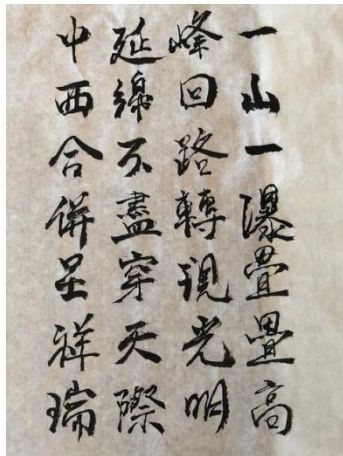 一山一瀑疊疊高
峰回路轉現光明
延綿不盡穿天際
中西合併呈祥瑞